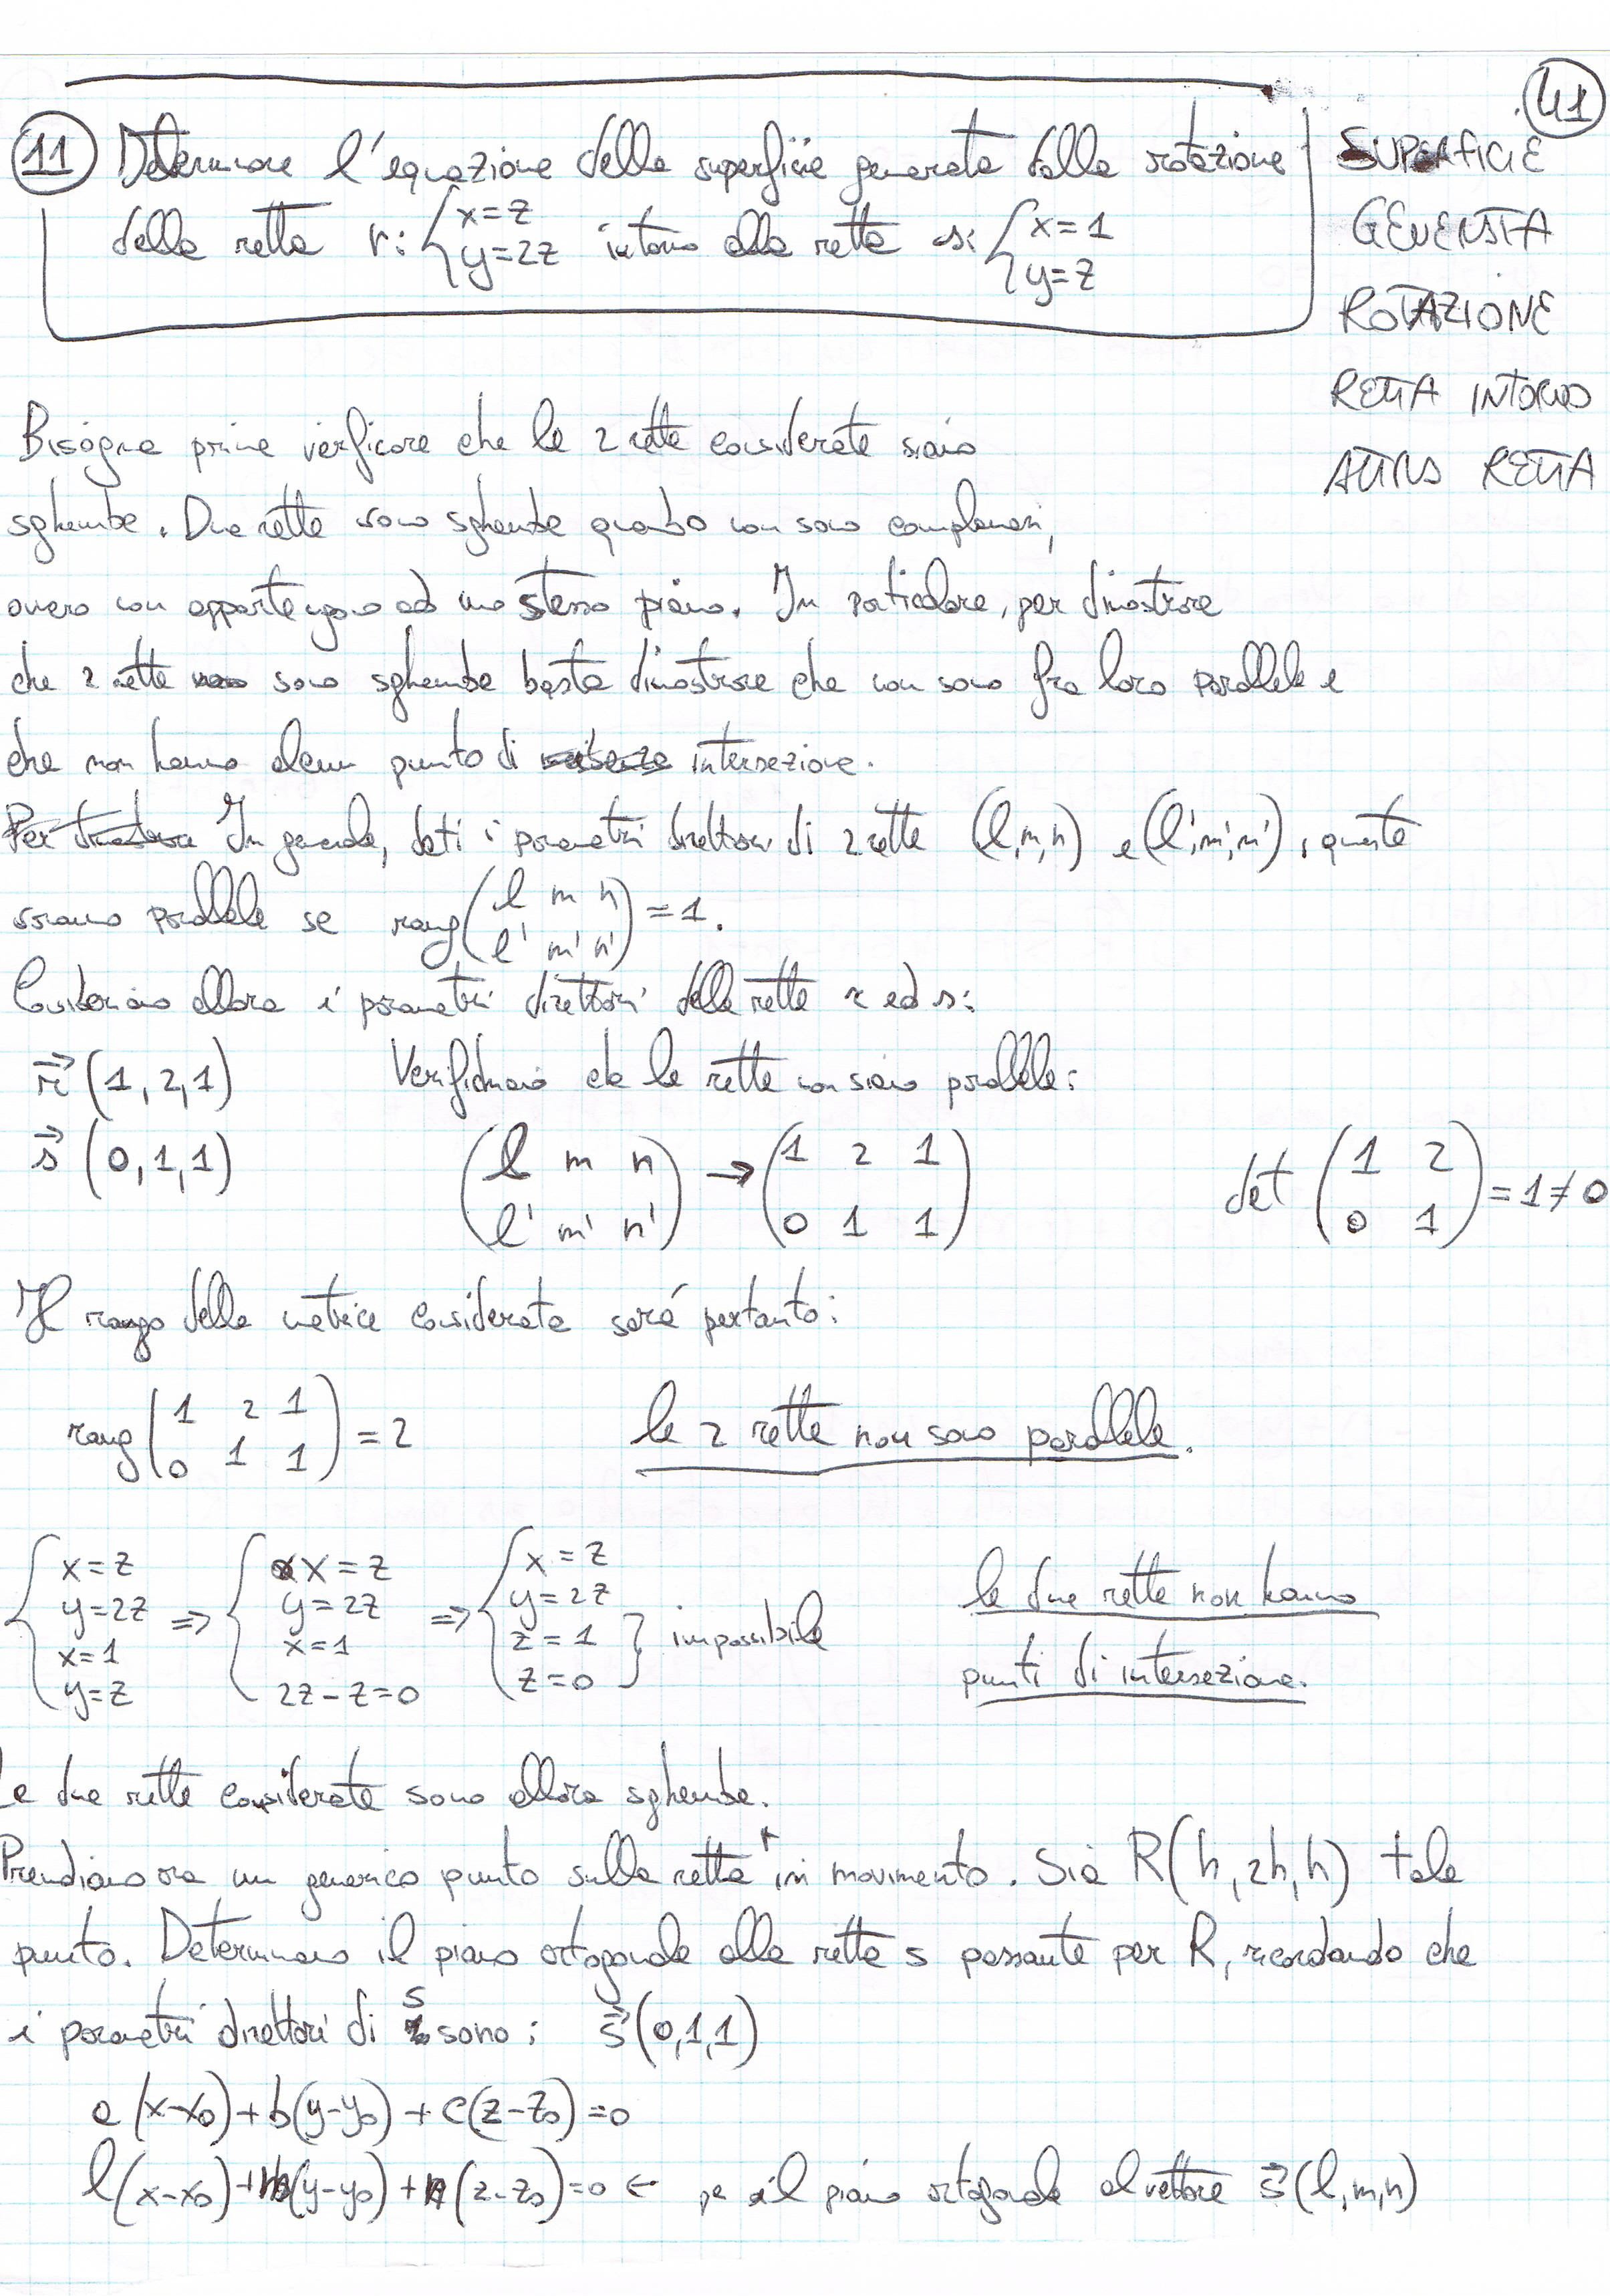 41
11 Determinare l'equazione della superficie generata dalla rotazione
della retta r: { x=z y=2z intorno alla retta s: { x=1 y=z
SUPERFICIE
GENERATA
ROTAZIONE
RETTA INTORNO
ALTRA RETTA
Bisogna prima verificare che le 2 rette considerate siano
sghembe. Due rette sono sghembe quando non sono complanari,
ovvero non appartengono ad uno stesso piano. In particolare, per dimostrare
che 2 rette sono sghembe basta dimostrare che non sono fra loro parallele e
che non hanno alcun punto di intersezione.
In generale, dati i parametri direttori di 2 rette (l,m,n) e (l',m',n'), queste
saranno parallele se rang(l m n / l' m' n') = 1.
Consideriamo allora i parametri direttori delle rette r ed s:
r⃗ (1,2,1) Verifichiamo che le rette non siano parallele:
s⃗ (0,1,1) (l m n / l' m' n') → (1 2 1 / 0 1 1) det (1 2 / 0 1) = 1 ≠ 0
Il rango della matrice considerata sarà pertanto:
rang (1 2 1 / 0 1 1) = 2 le 2 rette non sono parallele.
{ x=z y=2z x=1 y=z ⇒ { x=z y=2z x=1 2z-z=0 ⇒ { x=z y=2z z=1 z=0 } impossibile
le due rette non hanno
punti di intersezione.
Le due rette considerate sono allora sghembe.
Prendiamo ora un generico punto sulla retta r in movimento. Sia R(h,2h,h) tale
punto. Determiniamo il piano ortogonale alla retta s passante per R, ricordando che
i parametri direttori di s sono: s⃗(0,1,1)
a(x-x₀)+b(y-y₀)+c(z-z₀)=0
l(x-x₀)+m(y-y₀)+n(z-z₀)=0 ← per il piano ortogonale al vettore s⃗(l,m,n)